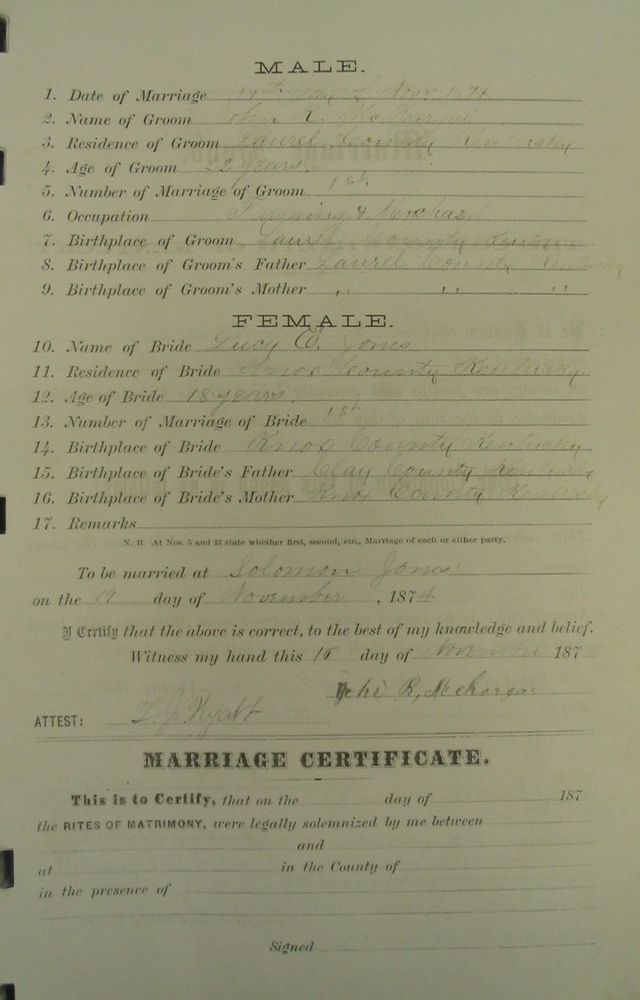 MALE.
1. Date of Marriage 19th day of Nov 1874
2. Name of Groom
3. Residence of Groom Laurel County Kentucky
4. Age of Groom 22 years.
5. Number of Marriage of Groom 1st
6. Occupation Farming &
7. Birthplace of Groom Laurel County Kentucky
8. Birthplace of Groom's Father Laurel County Kentucky
9. Birthplace of Groom's Mother " " "
FEMALE.
10. Name of Bride Lucy E. Jones
11. Residence of Bride Knox County Kentucky
12. Age of Bride 18 years.
13. Number of Marriage of Bride 1st
14. Birthplace of Bride Knox County Kentucky
15. Birthplace of Bride's Father Clay County Kentucky
16. Birthplace of Bride's Mother Knox County Kentucky
17. Remarks
N. B. At Nos. 5 and 13 state whether first, second, etc., Marriage of each or either party.
To be married at Solomon Jones
on the 19 day of November, 1874
I Certify that the above is correct, to the best of my knowledge and belief.
Witness my hand this day of November 187
R, McHargue
ATTEST: Wyatt
MARRIAGE CERTIFICATE.
This is to Certify, that on the day of 187
the RITES OF MATRIMONY, were legally solemnized by me between
and
at in the County of
in the presence of
Signed